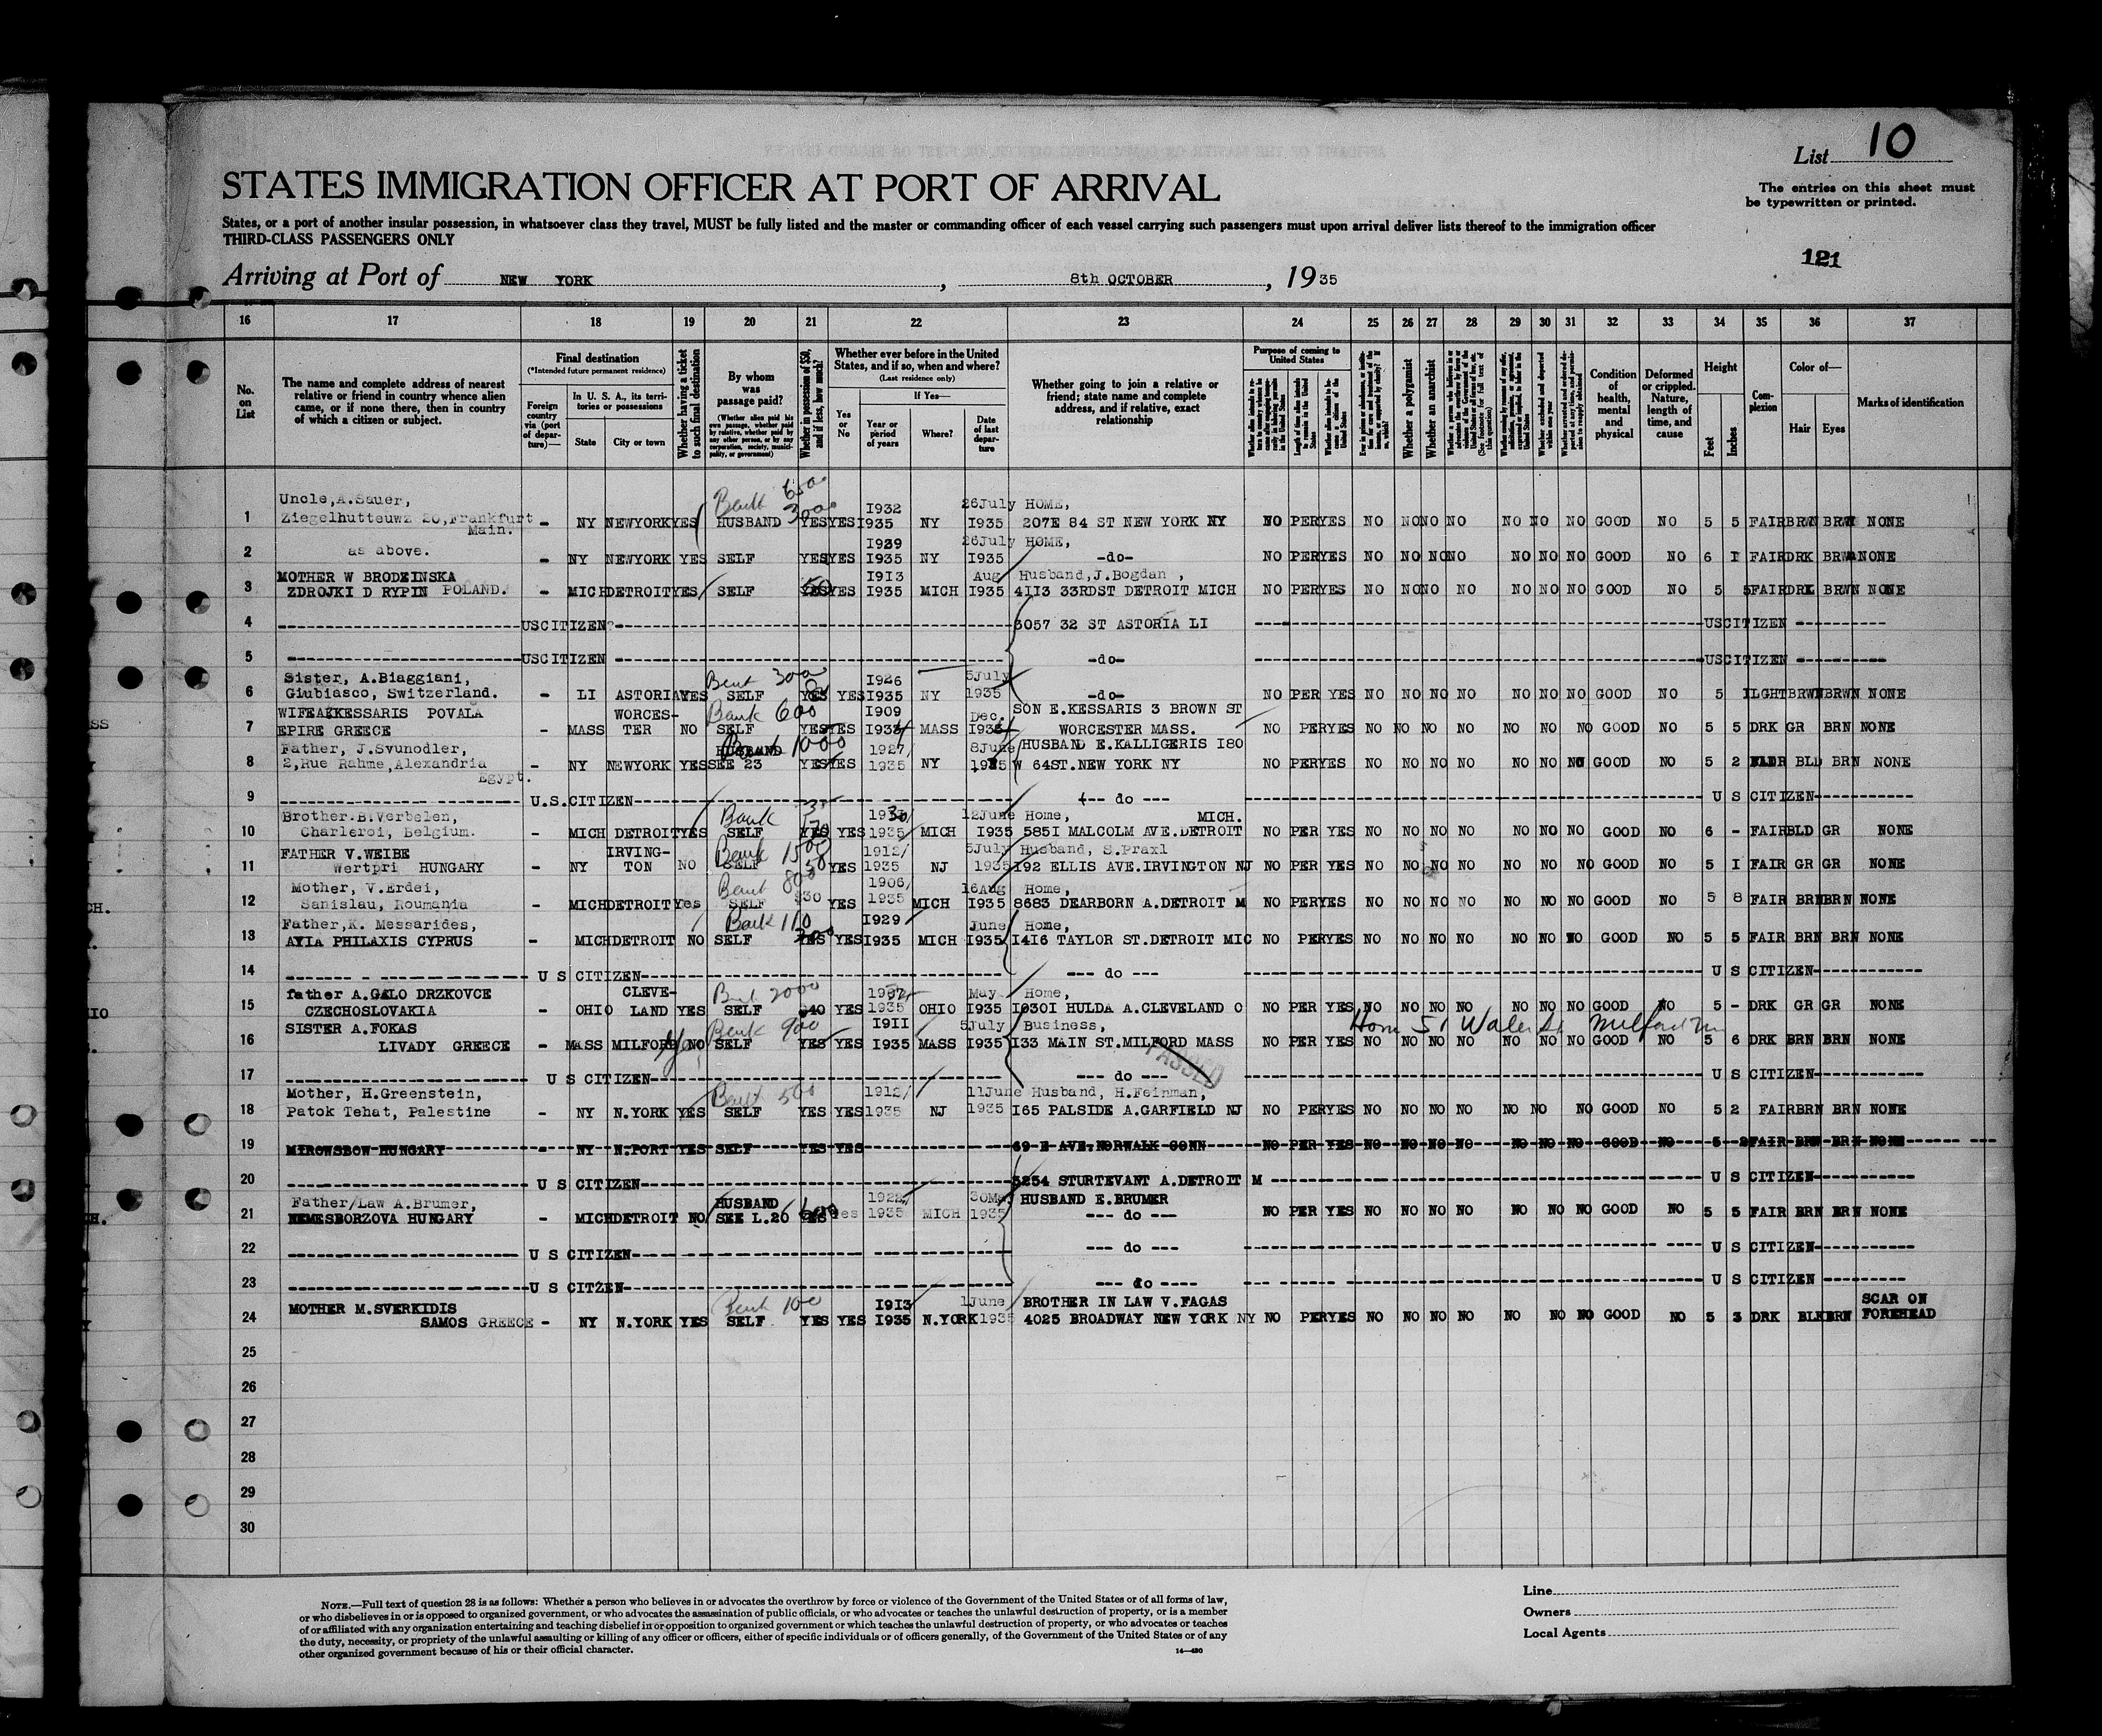 List 10
The entries on this sheet must
be typewritten or printed.
STATES IMMIGRATION OFFICER AT PORT OF ARRIVAL
States, or a port of another insular possession, in whatsoever class they travel, MUST be fully listed and the master or commanding officer of each vessel carrying such passengers must upon arrival deliver lists thereof to the immigration officer
THIRD-CLASS PASSENGERS ONLY
121
Arriving at Port of NEW YORK, 8th OCTOBER, 1935
16 17 18 19 20 21 22 23 24 25 26 27 28 29 30 31 32 33 34 35 36 37
No. on List
The name and complete address of nearest relative or friend in country whence alien came, or if none there, then in country of which a citizen or subject.
Final destination
(*Intended future permanent residence)
Foreign country via (port of departure)—
In U. S. A., its territories or possessions
State
City or town
Whether having a ticket to such final destination
By whom was passage paid?
(Whether alien paid his own passage, whether paid by relative, whether paid by any other person, or by any corporation, society, municipality, or government)
Whether in possession of $50, and if less, how much?
Whether ever before in the United States, and if so, when and where?
(Last residence only)
Yes or No
If Yes—
Year or period of years
Where?
Date of last departure
Whether going to join a relative or friend; state name and complete address, and if relative, exact relationship
Purpose of coming to United States
Whether a polygamist
Whether an anarchist
Condition of health, mental and physical
Deformed or crippled. Nature, length of time, and cause
Height
Feet
Inches
Complexion
Color of—
Hair
Eyes
Marks of identification
Uncle,A.Sauer, Bank I932 26July HOME,
1 Ziegelhutteuwz 20,Frankfurt - NY NEWYORK YES HUSBAND YES YES I935 NY I935 207E 84 ST NEW YORK NY NO PER YES NO NO NO NO NO NO NO GOOD NO 5 5 FAIR BRW BRW NONE
Main.
as above. I929 26July HOME,
2 - NY NEWYORK YES SELF YES YES I935 NY I935 -do- NO PER YES NO NO NO NO NO NO NO GOOD NO 6 I FAIR DRK BRW NONE
MOTHER W BRODZINSKA I913 Aug Husband,J.Bogdan ,
3 ZDROJKI D RYPIN POLAND. - MICH DETROIT YES SELF 50 YES I935 MICH I935 4II3 33RDST DETROIT MICH NO PER YES NO NO NO NO NO NO NO GOOD NO 5 5 FAIR DRK BRWN NONE
4 USCITIZEN 3057 32 ST ASTORIA LI USCITIZEN
5 USCITIZEN -do- USCITIZEN
Sister, A.Biaggiani, Bank 300 I926 5July
6 Giubiasco, Switzerland. - LI ASTORIA YES SELF YES YES I935 NY 1935 -do- NO PER YES NO NO NO NO NO NO NO GOOD NO 5 I LGHT BRWN BRWN NONE
KESSARIS POVALA WORCES- Bank 600 I909 Dec. SON E.KESSARIS 3 BROWN ST
7 EPIRE GREECE - MASS TER NO SELF YES YES MASS WORCESTER MASS. NO PER YES NO NO NO NO NO NO NO GOOD NO 5 5 DRK GR BRN NONE
Father, J.Svunodler, HUSBAND 1000 1927/ 8June HUSBAND E.KALLIGERIS I80
8 2,Rue Rahme,Alexandria - NY NEWYORK YES SEE 23 YES YES 1935 NY 1935 W 64ST.NEW YORK NY NO PER YES NO NO NO NO NO NO NO GOOD NO 5 2 BLD BRN NONE
Egypt.
9 U.S.CITIZEN -- do --- U S CITIZEN
Brother.B.Verbelen, Bank 12June Home, MICH.
10 Charleroi, Belgium. - MICH DETROIT YES SELF YES 1935 MICH I935 585I MALCOLM AVE.DETROIT NO PER YES NO NO NO NO NO NO NO GOOD NO 6 - FAIR BLD GR NONE
FATHER V.WEIBE IRVING- Bank 1500 1912/ 5July Husband, S.Praxl
11 Wertpri HUNGARY - NY TON NO SELF 50 YES 1935 NJ 1935 I92 ELLIS AVE.IRVINGTON NJ NO PER YES NO NO NO NO NO NO NO GOOD NO 5 I FAIR GR GR NONE
Mother, V.Erdei, Bank 800 1906/ 16Aug Home,
12 Sanislau, Roumania - MICH DETROIT Yes SELF $30 YES 1935 MICH I935 8683 DEARBORN A.DETROIT M NO PER YES NO NO NO NO NO NO NO GOOD NO 5 8 FAIR BRN BRN NONE
Father,K. Messarides, Bank 110 I929 June Home,
13 AYIA PHILAXIS CYPRUS - MICH DETROIT NO SELF YES I935 MICH I935 I4I6 TAYLOR ST.DETROIT MIC NO PER YES NO NO NO NO NO NO NO GOOD NO 5 5 FAIR BRN BRN NONE
14 U S CITIZEN --- do --- U S CITIZEN
father A.GALO DRZKOVCE CLEVE- 2000 May Home,
15 CZECHOSLOVAKIA - OHIO LAND YES SELF $40 YES 1935 OHIO I935 I030I HULDA A.CLEVELAND O NO PER YES NO NO NO NO NO NO NO GOOD NO 5 - DRK GR GR NONE
SISTER A.FOKAS Bank 900 I9II 5July Business, Hom 51 Water St Milford
16 LIVADY GREECE - MASS MILFORD NO SELF YES YES I935 MASS I935 I33 MAIN ST.MILFORD MASS NO PER YES NO NO NO NO NO NO NO GOOD NO 5 6 DRK BRN BRN NONE
17 U S CITIZEN --- do --- PASSED U S CITIZEN
Mother, H.Greenstein, Bank 500 1912/ 11June Husband, H.Feinman,
18 Patok Tehat, Palestine - NY N.YORK YES SELF YES YES 1935 NJ 1935 I65 PALSIDE A.GARFIELD NJ NO PER YES NO NO NO NO NO NO NO GOOD NO 5 2 FAIR BRN BRN NONE
19 MIROWSBOW HUNGARY - NY N.PORT YES SELF YES YES 69 E AVE.NORWALK CONN NO PER YES NO NO NO NO NO NO NO GOOD NO 5 2 FAIR BRN BRN NONE
20 U S CITIZEN 5254 STURTEVANT A.DETROIT M U S CITIZEN
Father/Law A.Brumer, HUSBAND 1922/ HUSBAND E.BRUMER
21 NEMESBORZOVA HUNGARY - MICH DETROIT NO SEE L.26 Yes 1935 MICH 1935 --- do --- NO PER YES NO NO NO NO NO NO NO GOOD NO 5 5 FAIR BRN BRN NONE
22 U S CITIZEN --- do --- U S CITIZEN
23 U S CITZEN --- do ---- U S CITIZEN
MOTHER M.SVERKIDIS Bank 100 I913 1June BROTHER IN LAW V.FAGAS SCAR ON
24 SAMOS GREECE - NY N.YORK YES SELF YES YES I935 N.YORK 1935 4025 BROADWAY NEW YORK NY NO PER YES NO NO NO NO NO NO NO GOOD NO 5 3 DRK BLK BRN FOREHEAD
25
26
27
28
29
30
NOTE.—Full text of question 28 is as follows: Whether a person who believes in or advocates the overthrow by force or violence of the Government of the United States or of all forms of law,
or who disbelieves in or is opposed to organized government, or who advocates the assassination of public officials, or who advocates or teaches the unlawful destruction of property, or is a member
of or affiliated with any organization entertaining and teaching disbelief in or opposition to organized government or which teaches the unlawful destruction of property, or who advocates or teaches
the duty, necessity, or propriety of the unlawful assaulting or killing of any officer or officers, either of specific individuals or of officers generally, of the Government of the United States or of any
other organized government because of his or their official character.
14—430
Line
Owners
Local Agents